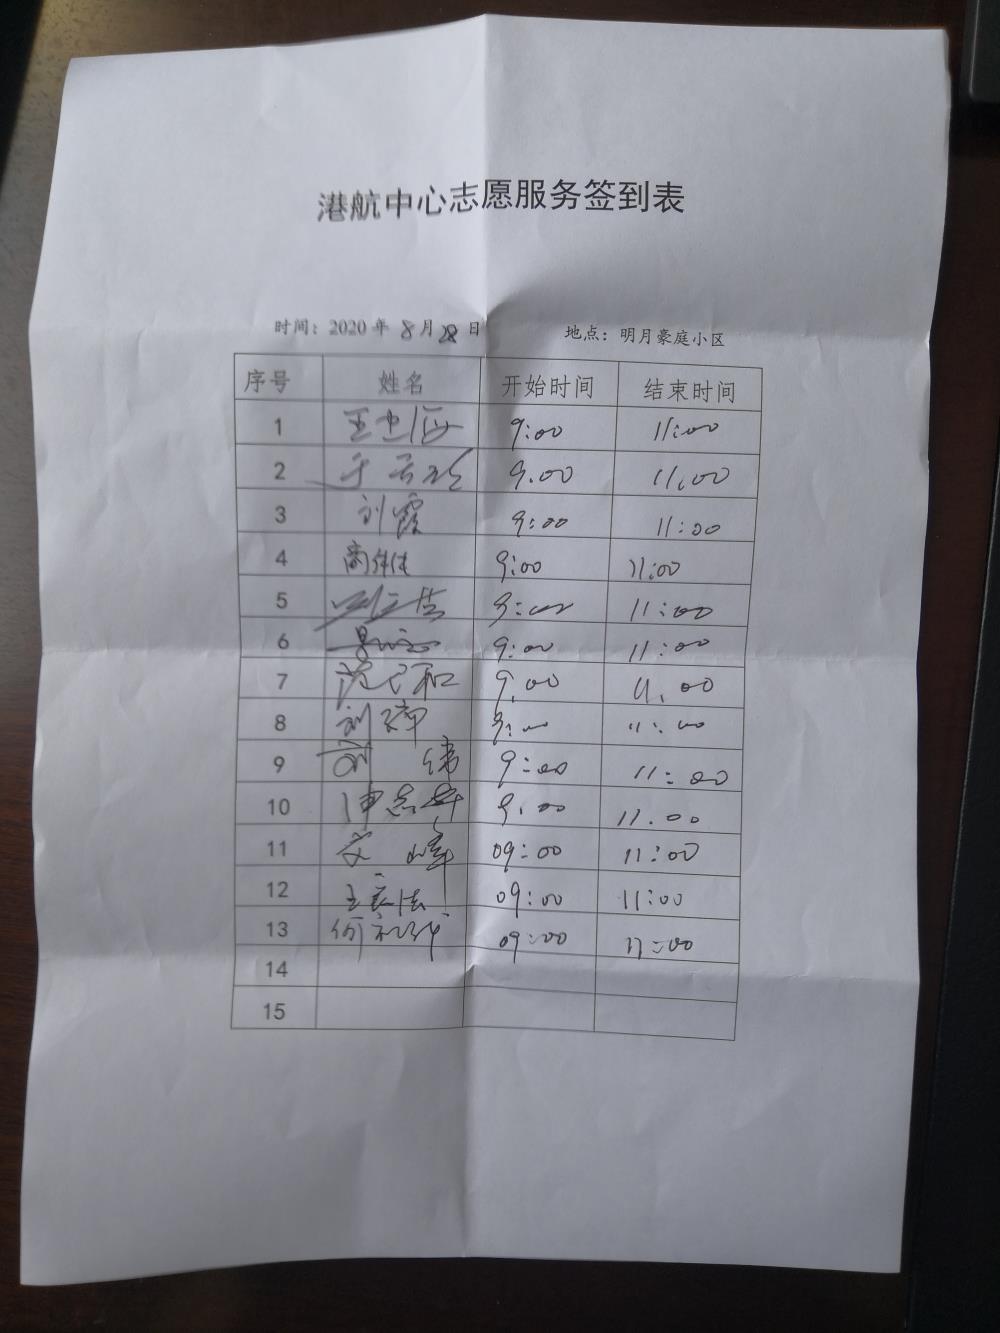 港航中心志愿服务签到表
时间：2020年 8月28日 地点：明月豪庭小区
序号 姓名 开始时间 结束时间
1 9:00 11:00
2 9.00 11.00
3 刘霞 9:00 11:00
4 9:00 11:00
5 9:00 11:00
6 9:00 11:00
7 9.00 11.00
8 9:00 11:00
9 9:00 11:00
10 9:00 11.00
11 峰 09:00 11:00
12 09:00 11:00
13 09:00 11:00
14
15